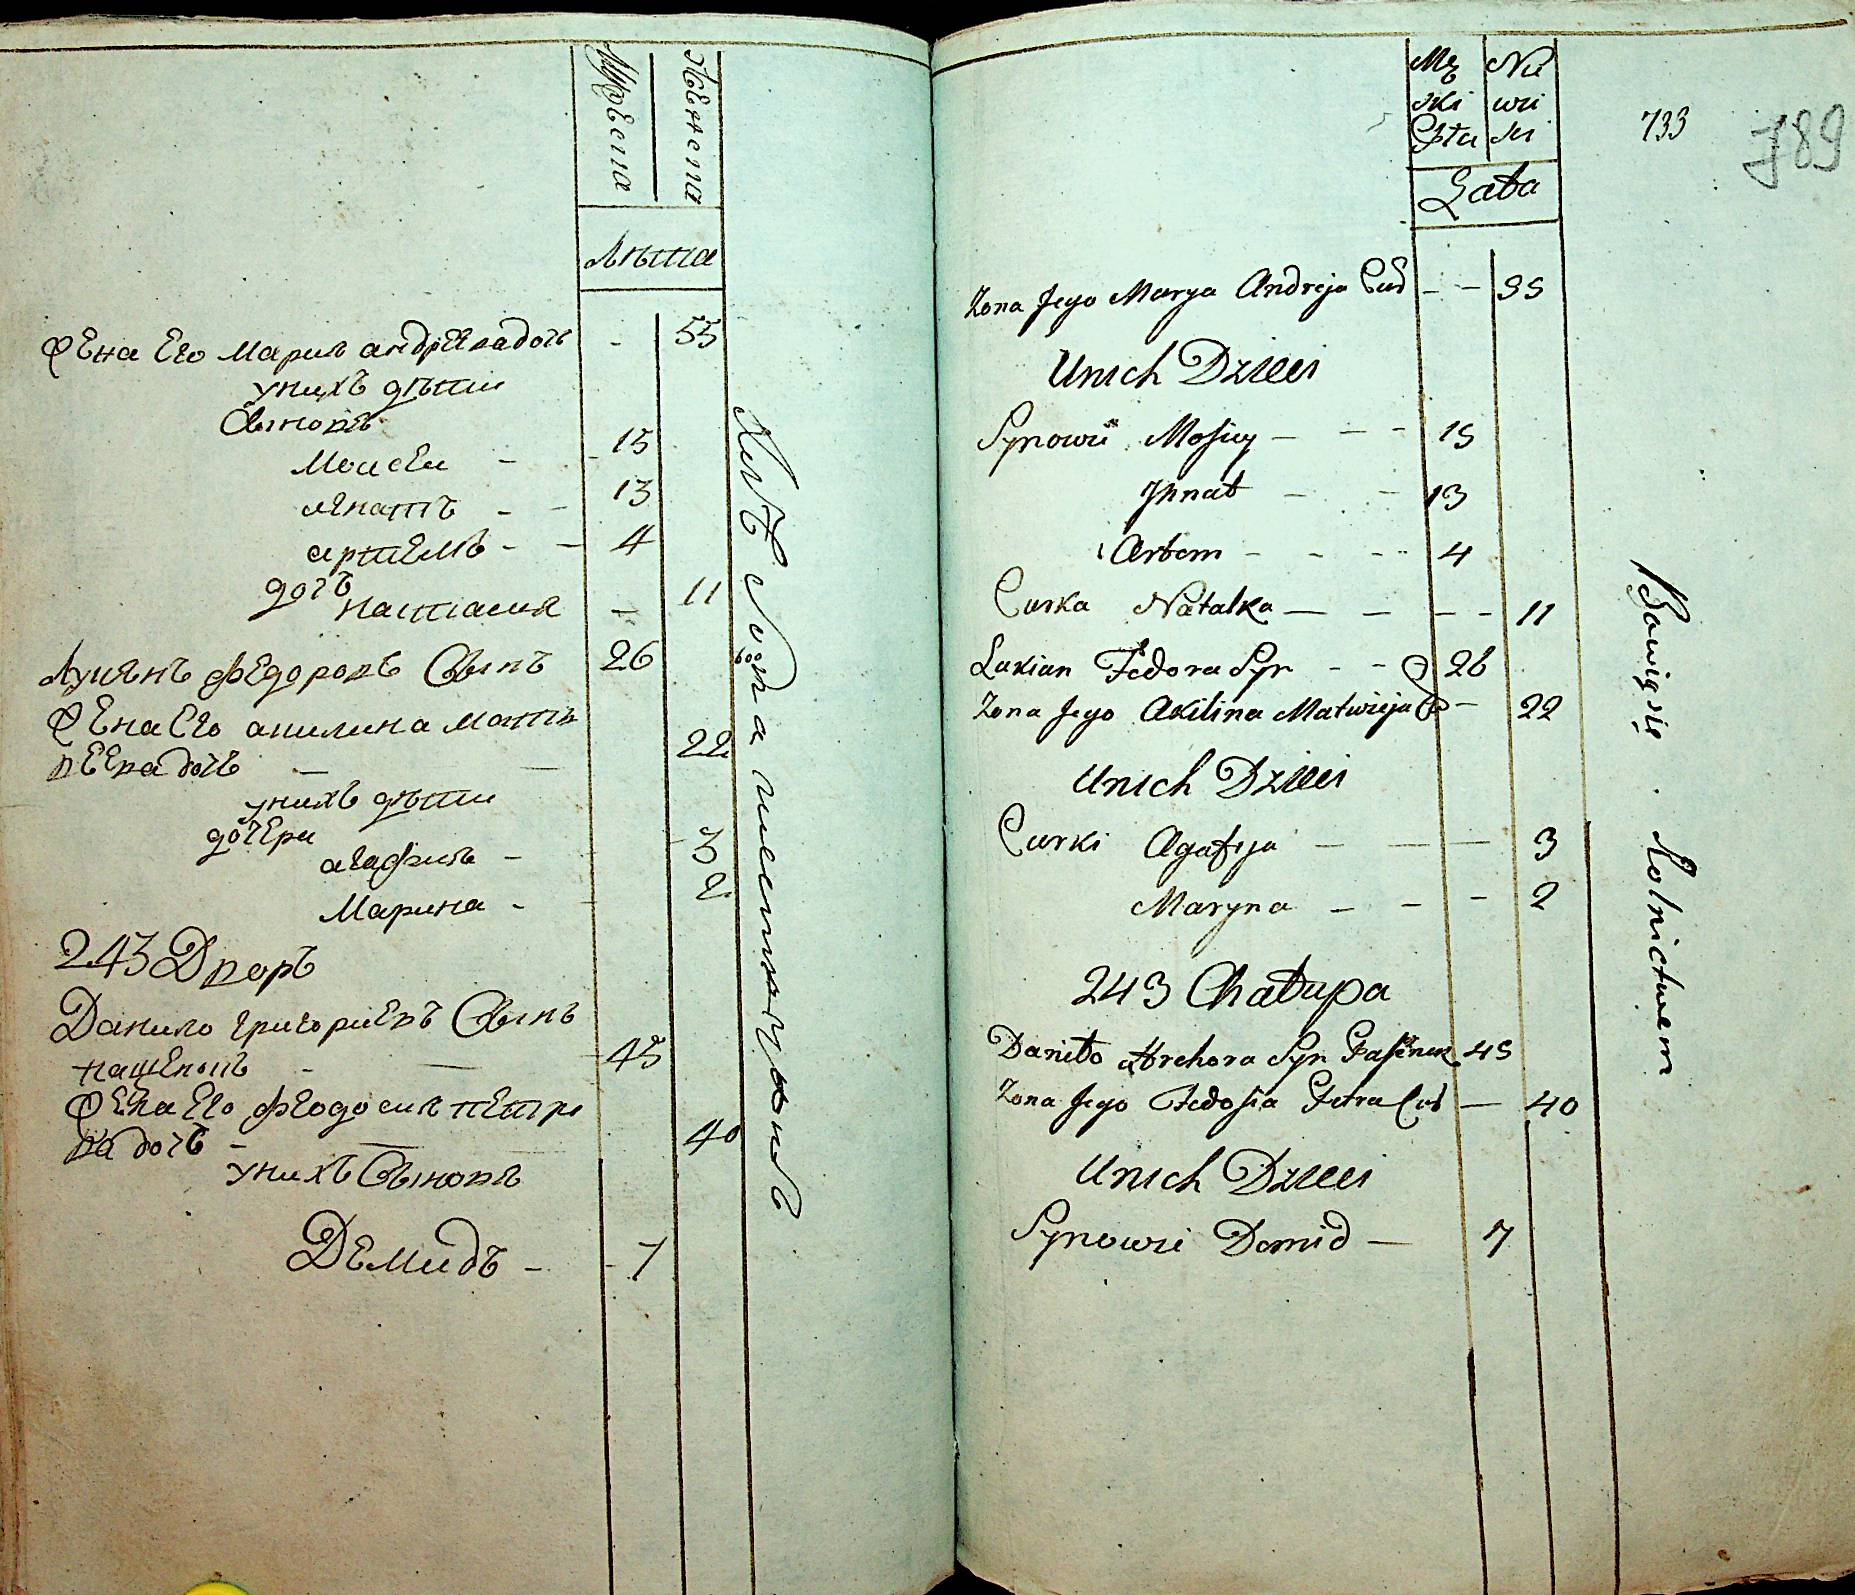 Мужеска
Женска
Лѣта
Жена Его Мария андрѣева дочь - 55
у нихъ дѣти
Сыновъ
Моисеи - 15
игнатъ - - 13
артемъ - - 4
дочь
настасия - 11
Лукянъ федоровъ Сынъ 26
Жена Его акилина матв
веева дочь - 22
у нихъ дѣти
дочери
агафия - 3
Марина - 2
243 Дворъ
Данило григориевъ Сынъ
пащенокъ - 45
Жена Его феодосия петро
ва дочь - 40
у нихъ Сыновъ
Демидъ - 7
Mę Nie
ski wie
Płta ści
Lata
733
789
Żona Jego Marya Andreja Cur - - 55
Unich Dzieci
Synowie Mosiey - - - 15
Ihnat - - 13
Artem - - - 4
Curka Natalka - - - - 11
Lukian Fedora Syn - - 26
Żona Jego Akilina Matwieja C - 22
Unich Dzieci
Curki Agafija - - - 3
Maryna - - - 2
243 Chałupa
Daniło Hrehora Syn Paszenek 45
Żona Jego Fedosia Petra Cur - 40
Unich Dzieci
Synowie Demid - 7
Bawią się Rolnictwem